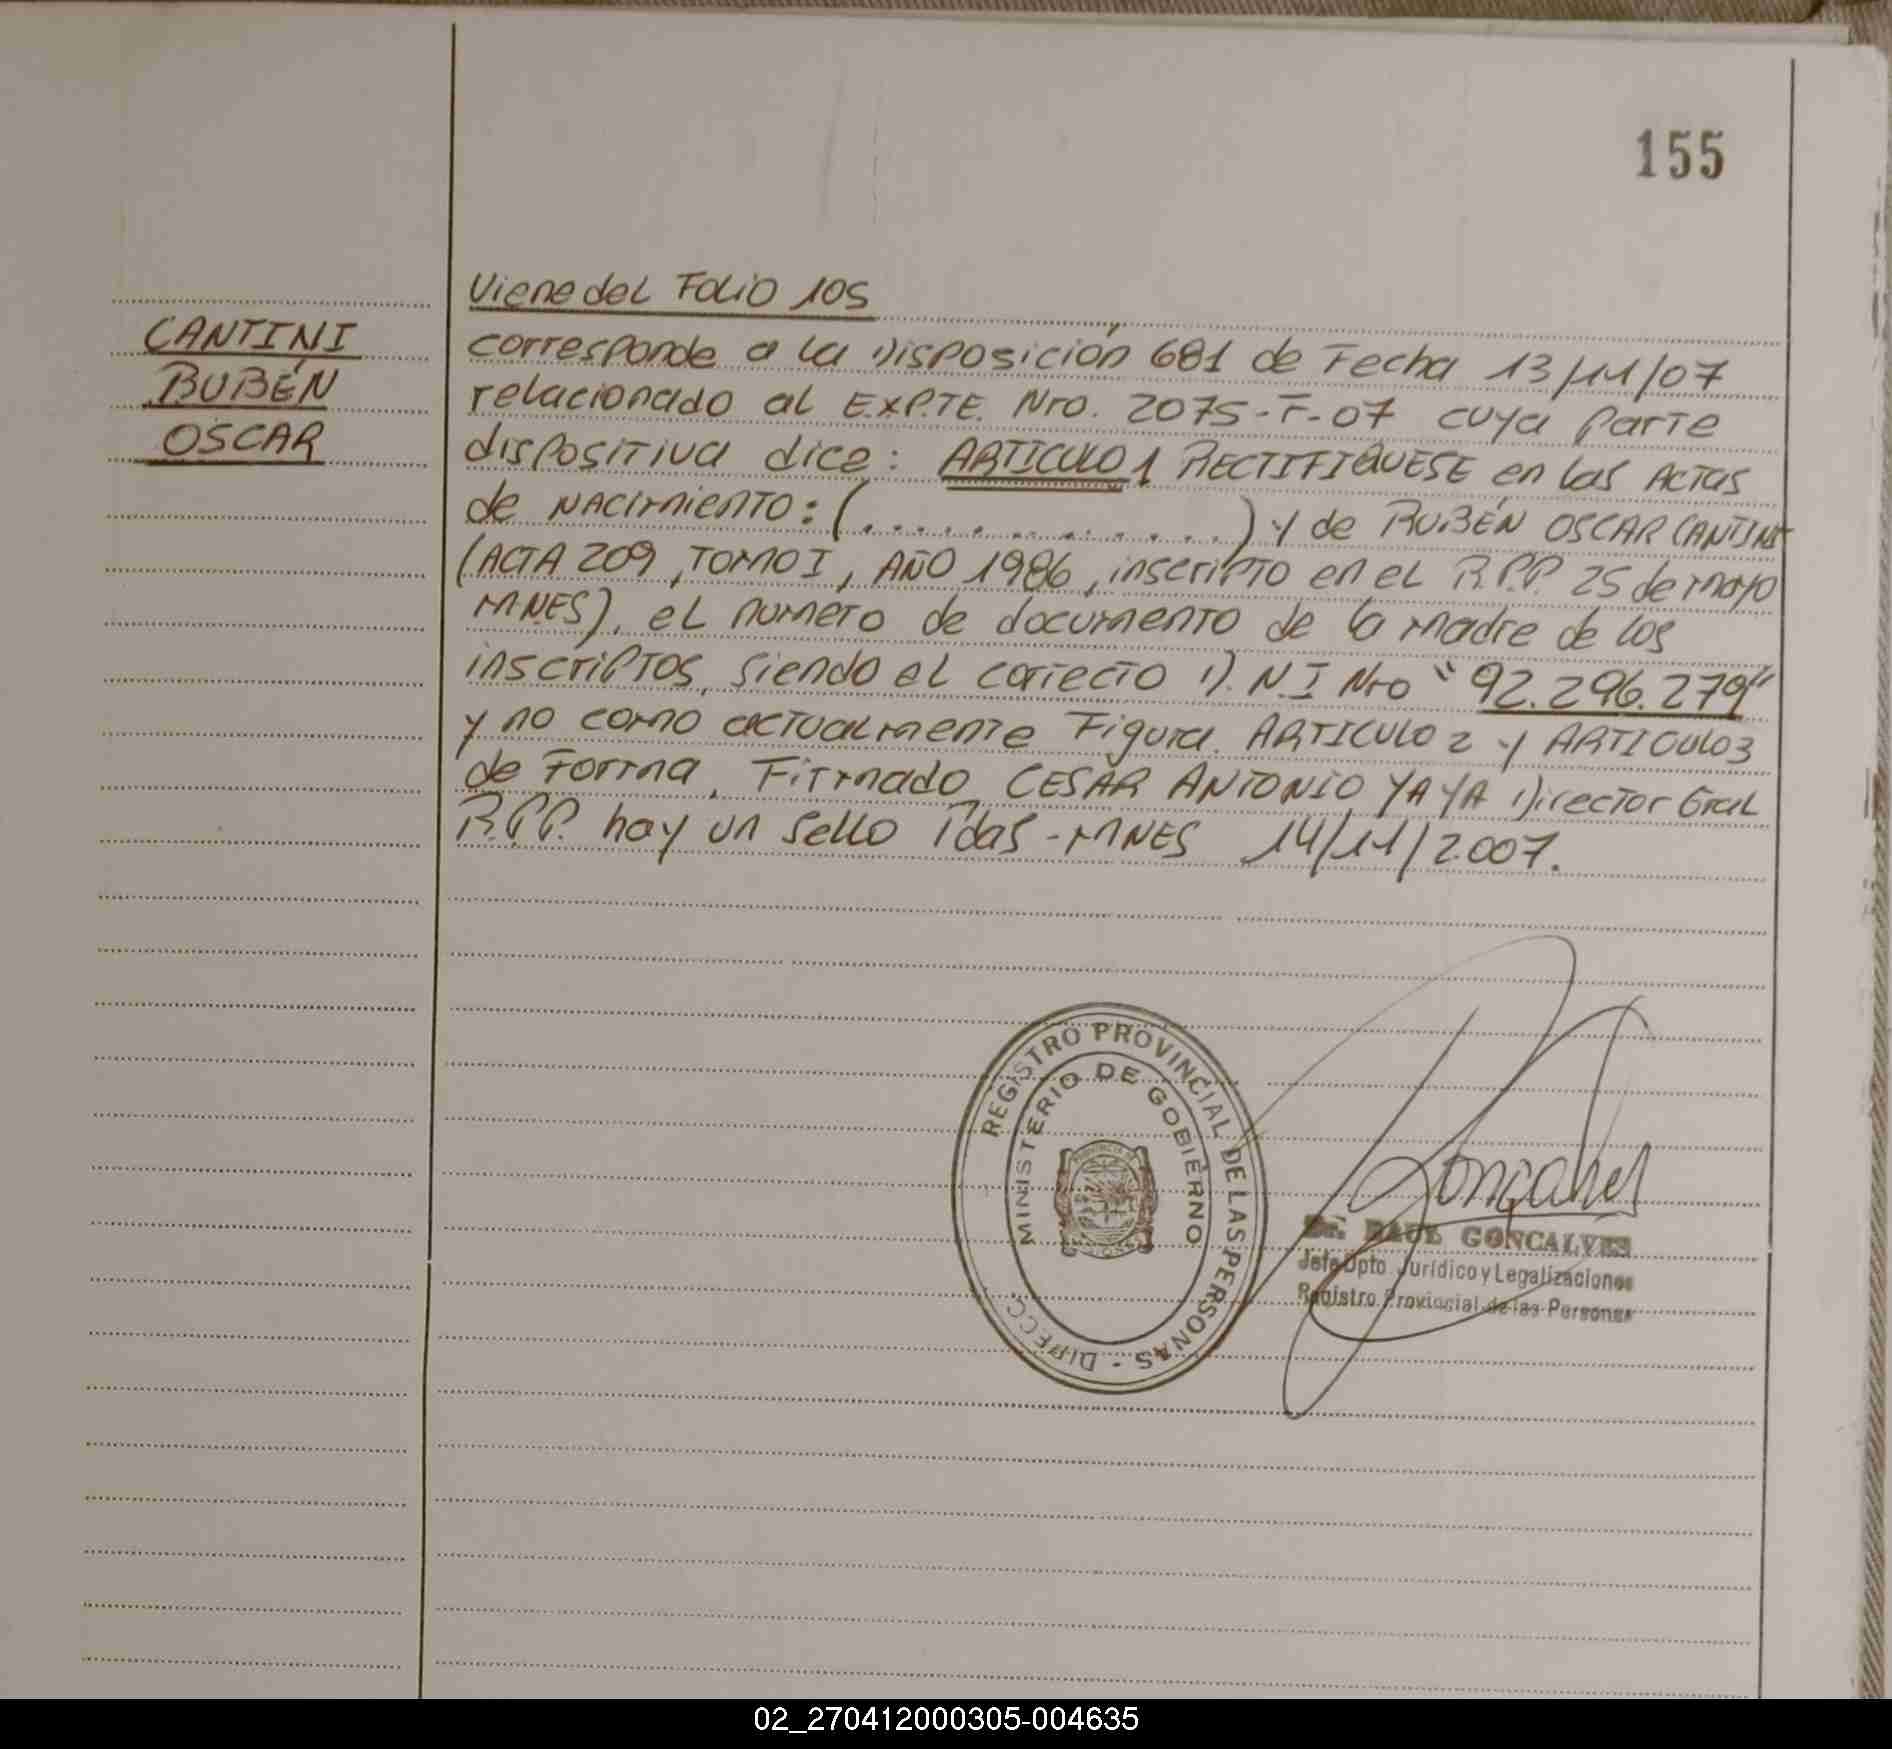 155
CANTINI
RUBÉN
OSCAR
Viene del Folio 105
corresponde a la Disposición 681 de Fecha 13/11/07
relacionado al EXPTE. Nro. 2075-F-07 cuya parte
dispositiva dice: ARTICULO 1 RECTIFIQUESE en las Actas
de NACimiento: (..............) y de RUBÉN OSCAR CANTINI
(ACTA 209, TOMO I, AÑO 1986, inscripto en el R.P.P. 25 de mayo
MNES), el numero de documento de la madre de los
inscriptos, siendo el correcto D.N.I Nro "92.296.279"
y no como actualmente Figura. ARTICULO 2 y ARTICULO 3
de Forma. Firmado CESAR ANTONIO YAYA Director Gral
R.P.P. hay un sello Pdas-MNES 14/11/2007.
REGISTRO PROVINCIAL DE LAS PERSONAS - DIRECC
MINISTERIO DE GOBIERNO
Goncalves
Dr. RAUL GONCALVES
Jefe Dpto. Jurídico y Legalizaciones
Registro Provincial de las Personas
02_270412000305-004635